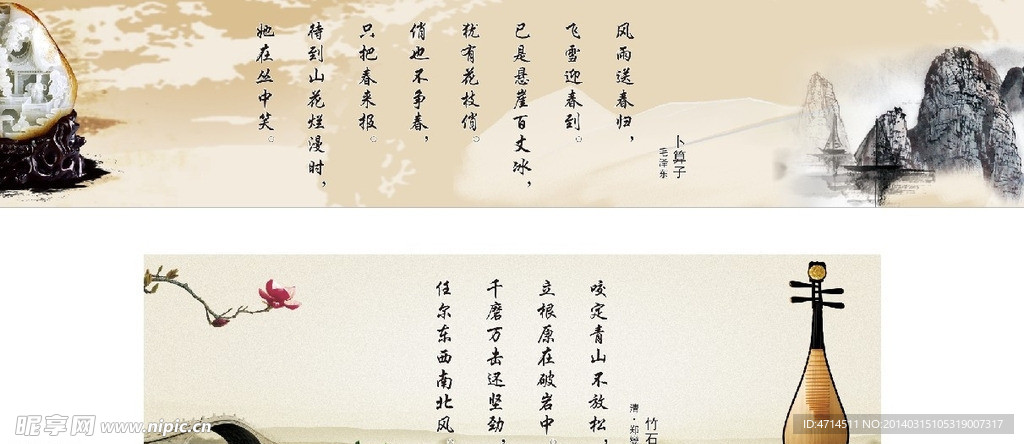 卜算子
毛泽东
风雨送春归，
飞雪迎春到。
已是悬崖百丈冰，
犹有花枝俏。
俏也不争春，
只把春来报。
待到山花烂漫时，
她在丛中笑。
竹石
清·郑
咬定青山不放松，
立根原在破岩中。
千磨万击还坚劲，
任尔东西南北风。
昵享网 www.nipic.cn
ID:4714511 NO:20140315105319007317